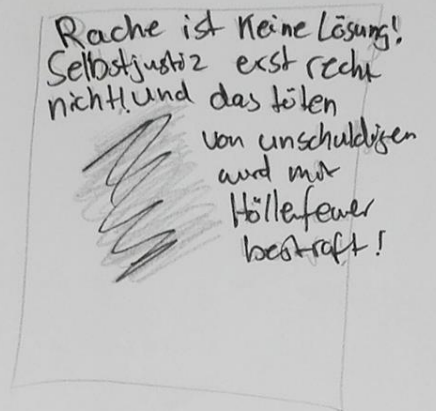 Rache ist Keine Lösung!
Selbstjustiz erst recht
nicht! Und das töten
von unschuldigen
wird mit
Höllenfeuer
bestraft!